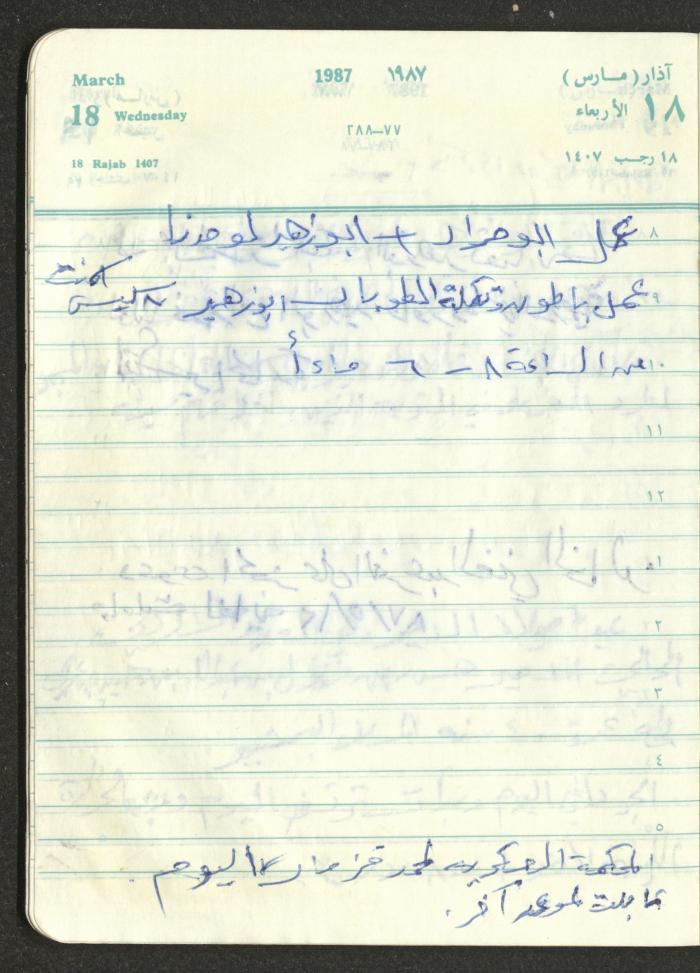 March 1987 ١٩٨٧ آذار (مارس)
18 Wednesday ١٨ الأربعاء
٧٧–٢٨٨
18 Rajab 1407 ١٨ رجب ١٤٠٧
٨ عمل ابو مراد + ابو زهير
٩ عمل باطون وتكملة الطوبار ابو زهير ٨ كيس اسمنت
١٠ من الساعة ٨ – ٦ مساءأ
١١
١٢
١
٢
٣
٤
٥
المحكمة العسكرية لمحمد اليوم
تأجلت لموعد آخر.